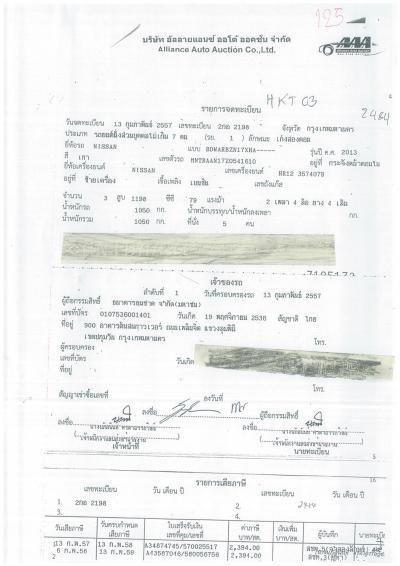 125
บริษัท อัลลายแอนซ์ ออโต้ ออคชั่น จำกัด
Alliance Auto Auction Co.,Ltd.
AAA
HKT 03
2484
รายการจดทะเบียน
วันจดทะเบียน 13 กุมภาพันธ์ 2557 เลขทะเบียน 2กอ 2198 จังหวัด กรุงเทพมหานคร
ประเภท รถยนต์นั่งส่วนบุคคลไม่เกิน 7 คน (รย. 1 ) ลักษณะ เก๋งสองตอน
ยี่ห้อรถ NISSAN แบบ รุ่นปี ค.ศ. 2013
สี เทา เลขตัวรถ MNTBAAN17Z0541610 อยู่ที่
ยี่ห้อเครื่องยนต์ NISSAN เลขเครื่องยนต์ HR12 357407B
อยู่ที่ เชื้อเพลิง เบนซิน เลขถังแก๊ส
จำนวน 3 สูบ 1198 ซีซี 79 แรงม้า 2 เพลา 4 ล้อ ยาง 4 เส้น
น้ำหนักรถ 1050 กก. น้ำหนักบรรทุก/น้ำหนักลงเพลา กก.
น้ำหนักรวม 1050 กก. ที่นั่ง 5 คน
เจ้าของรถ
ลำดับที่ 1 วันที่ครอบครองรถ 13 กุมภาพันธ์ 2557
ผู้ถือกรรมสิทธิ์ ธนาคารธนชาต จำกัด(มหาชน)
เลขที่บัตร 0107536001401 วันเกิด 19 พฤศจิกายน 2536 สัญชาติ ไทย
ที่อยู่ 900 อาคารต้นสนทาวเวอร์ ถนนเพลินจิต แขวงลุมพินี
เขตปทุมวัน กรุงเทพมหานคร โทร.
ผู้ครอบครอง
เลขที่บัตร วันเกิด
ที่อยู่
โทร.
สัญญาเช่าซื้อเลขที่ ลงวันที่
ลงชื่อ ผู้ถือกรรมสิทธิ์
ลงชื่อ ลงชื่อ
นายทะเบียน
5
16
รายการเสียภาษี
เลขทะเบียน วัน เดือน ปี เลขทะเบียน วัน เดือน ปี
1. 2กอ 2198 2.
3. 4.
วันเสียภาษี วันครบกำหนดเสียภาษี ใบเสร็จรับเงินเลขที่คุม/เลขที่ ค่าภาษีบาท/สต. เงินเพิ่มบาท/สต. ผู้บันทึก นายทะเบียน
13 ก.พ.57 13 ก.พ.58 A34874745/570025517 2,394.00
6 ก.พ.58 13 ก.พ.59 A43587046/580056756 2,394.00
2
3